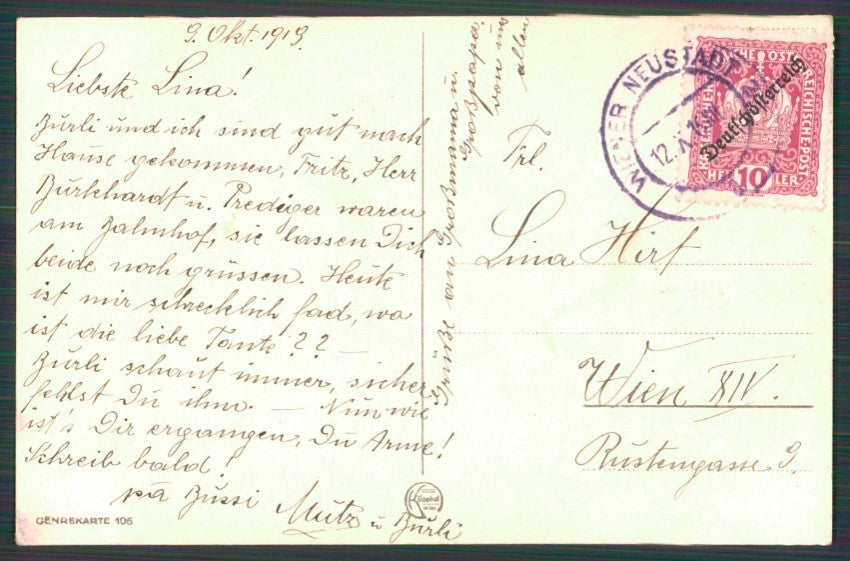 9. Okt. 1919.
Liebste Lina!
Burli und ich sind gut nach
Hause gekommen, Fritz, Herr
Burkhardt u. Prediger waren
am Bahnhof, sie lassen Dich
beide noch grüssen. Heute
ist mir schrecklich fad, wo
ist die liebe Tante?? —
Burli schaut immer, sicher
fehlst Du ihm. — Nun wie
ist's Dir ergangen, Du Arme!
Schreib bald!
Bussi
Mutz u Burli
Grüße an Großmama u.
Großpapa
von uns
allen
Frl.
Lina Hirt
Wien XIV.
Rustengasse 9.
WIENER NEUSTADT
12.X.
Deutschösterreich
10
HELLER
GENREKARTE 106